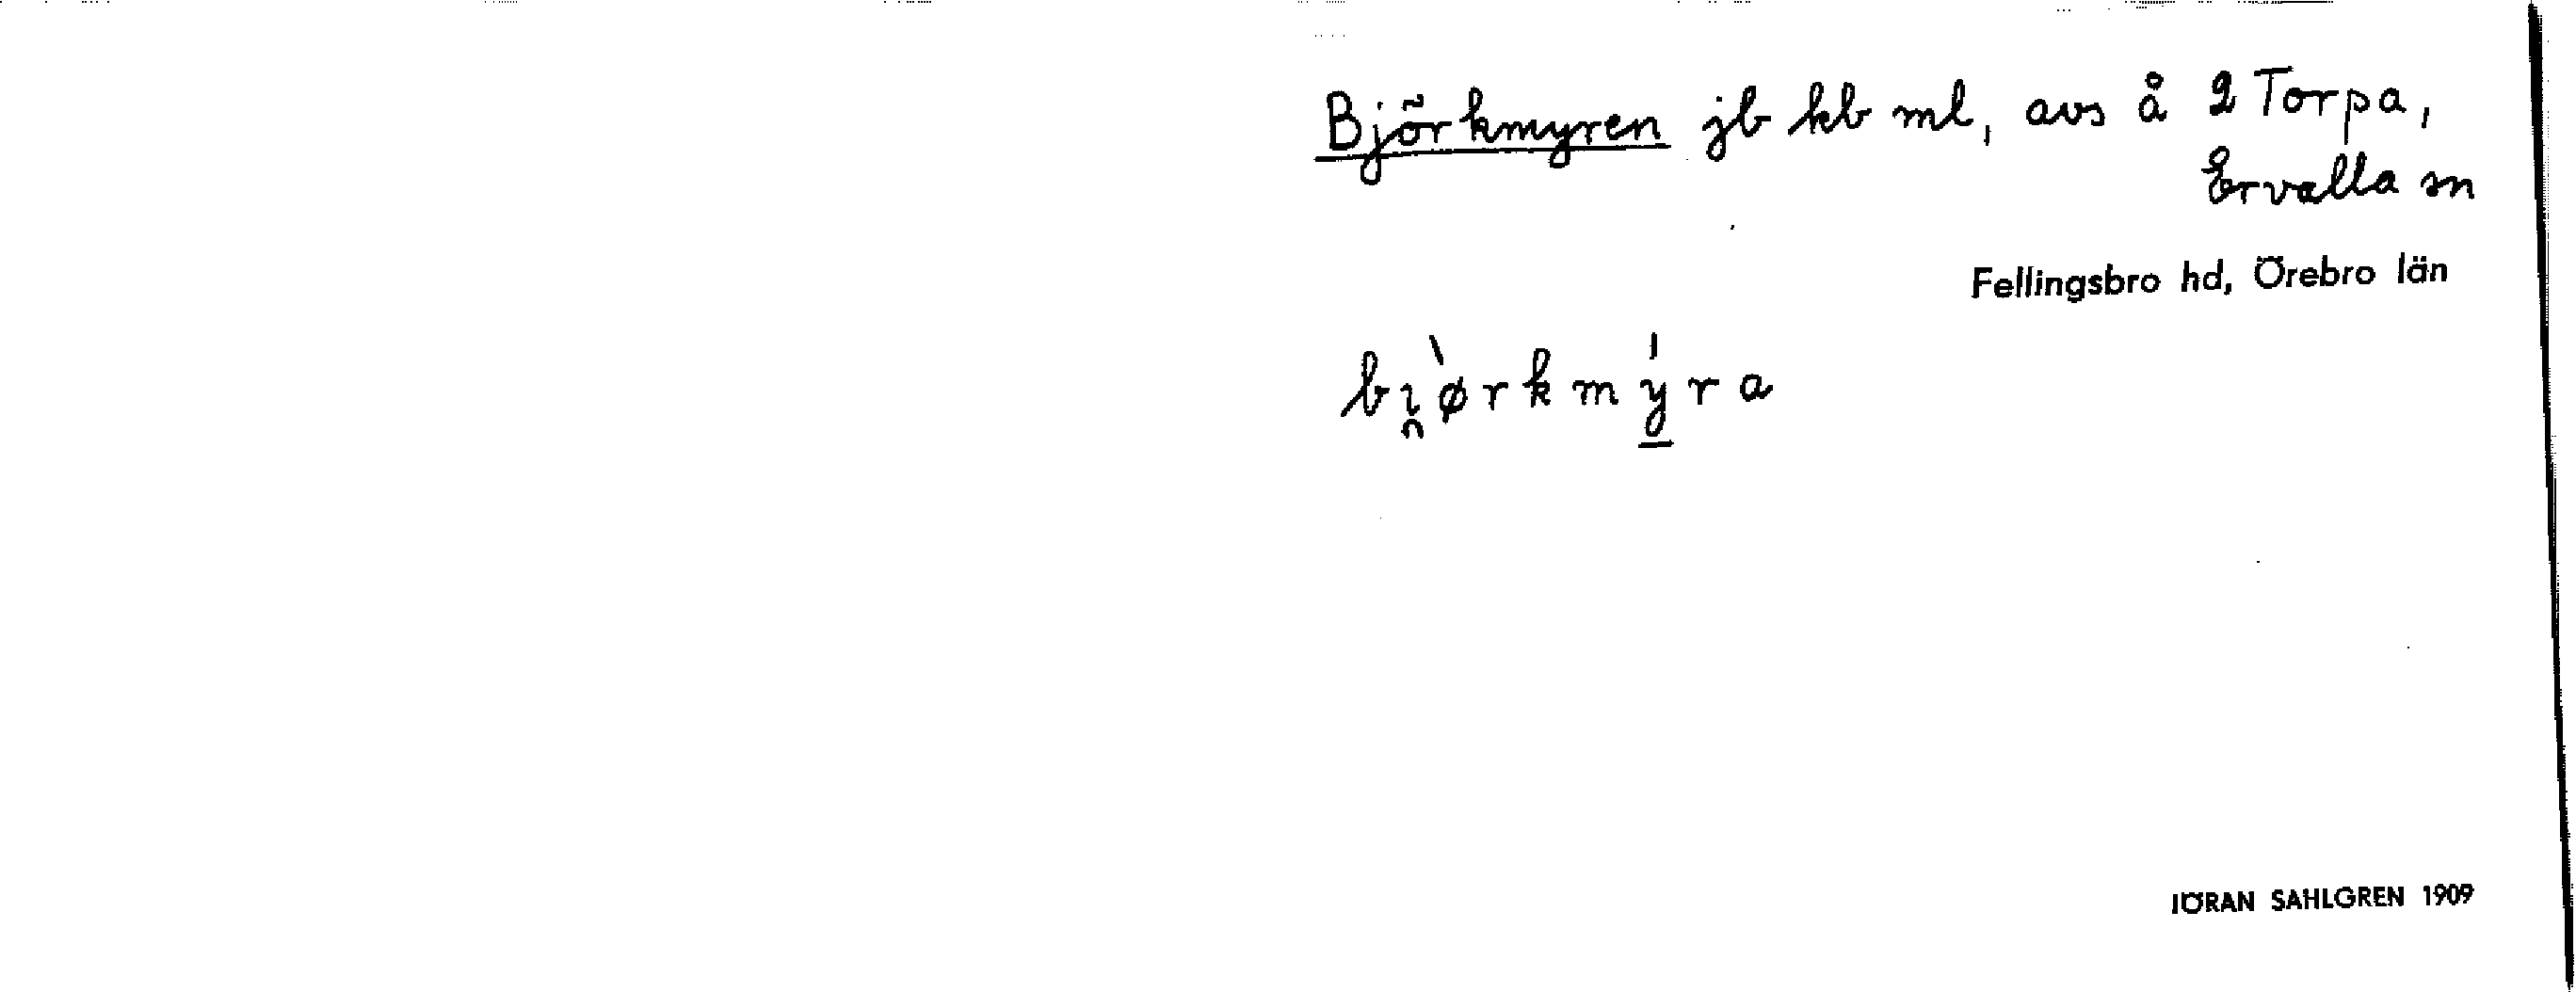 Björkmyren jb kb ml, avs å 2 Torpa,
Ervalla sn
Fellingsbro hd, Örebro län
bı̯ø̀rkmý̲ra
JÖRAN SAHLGREN 1909